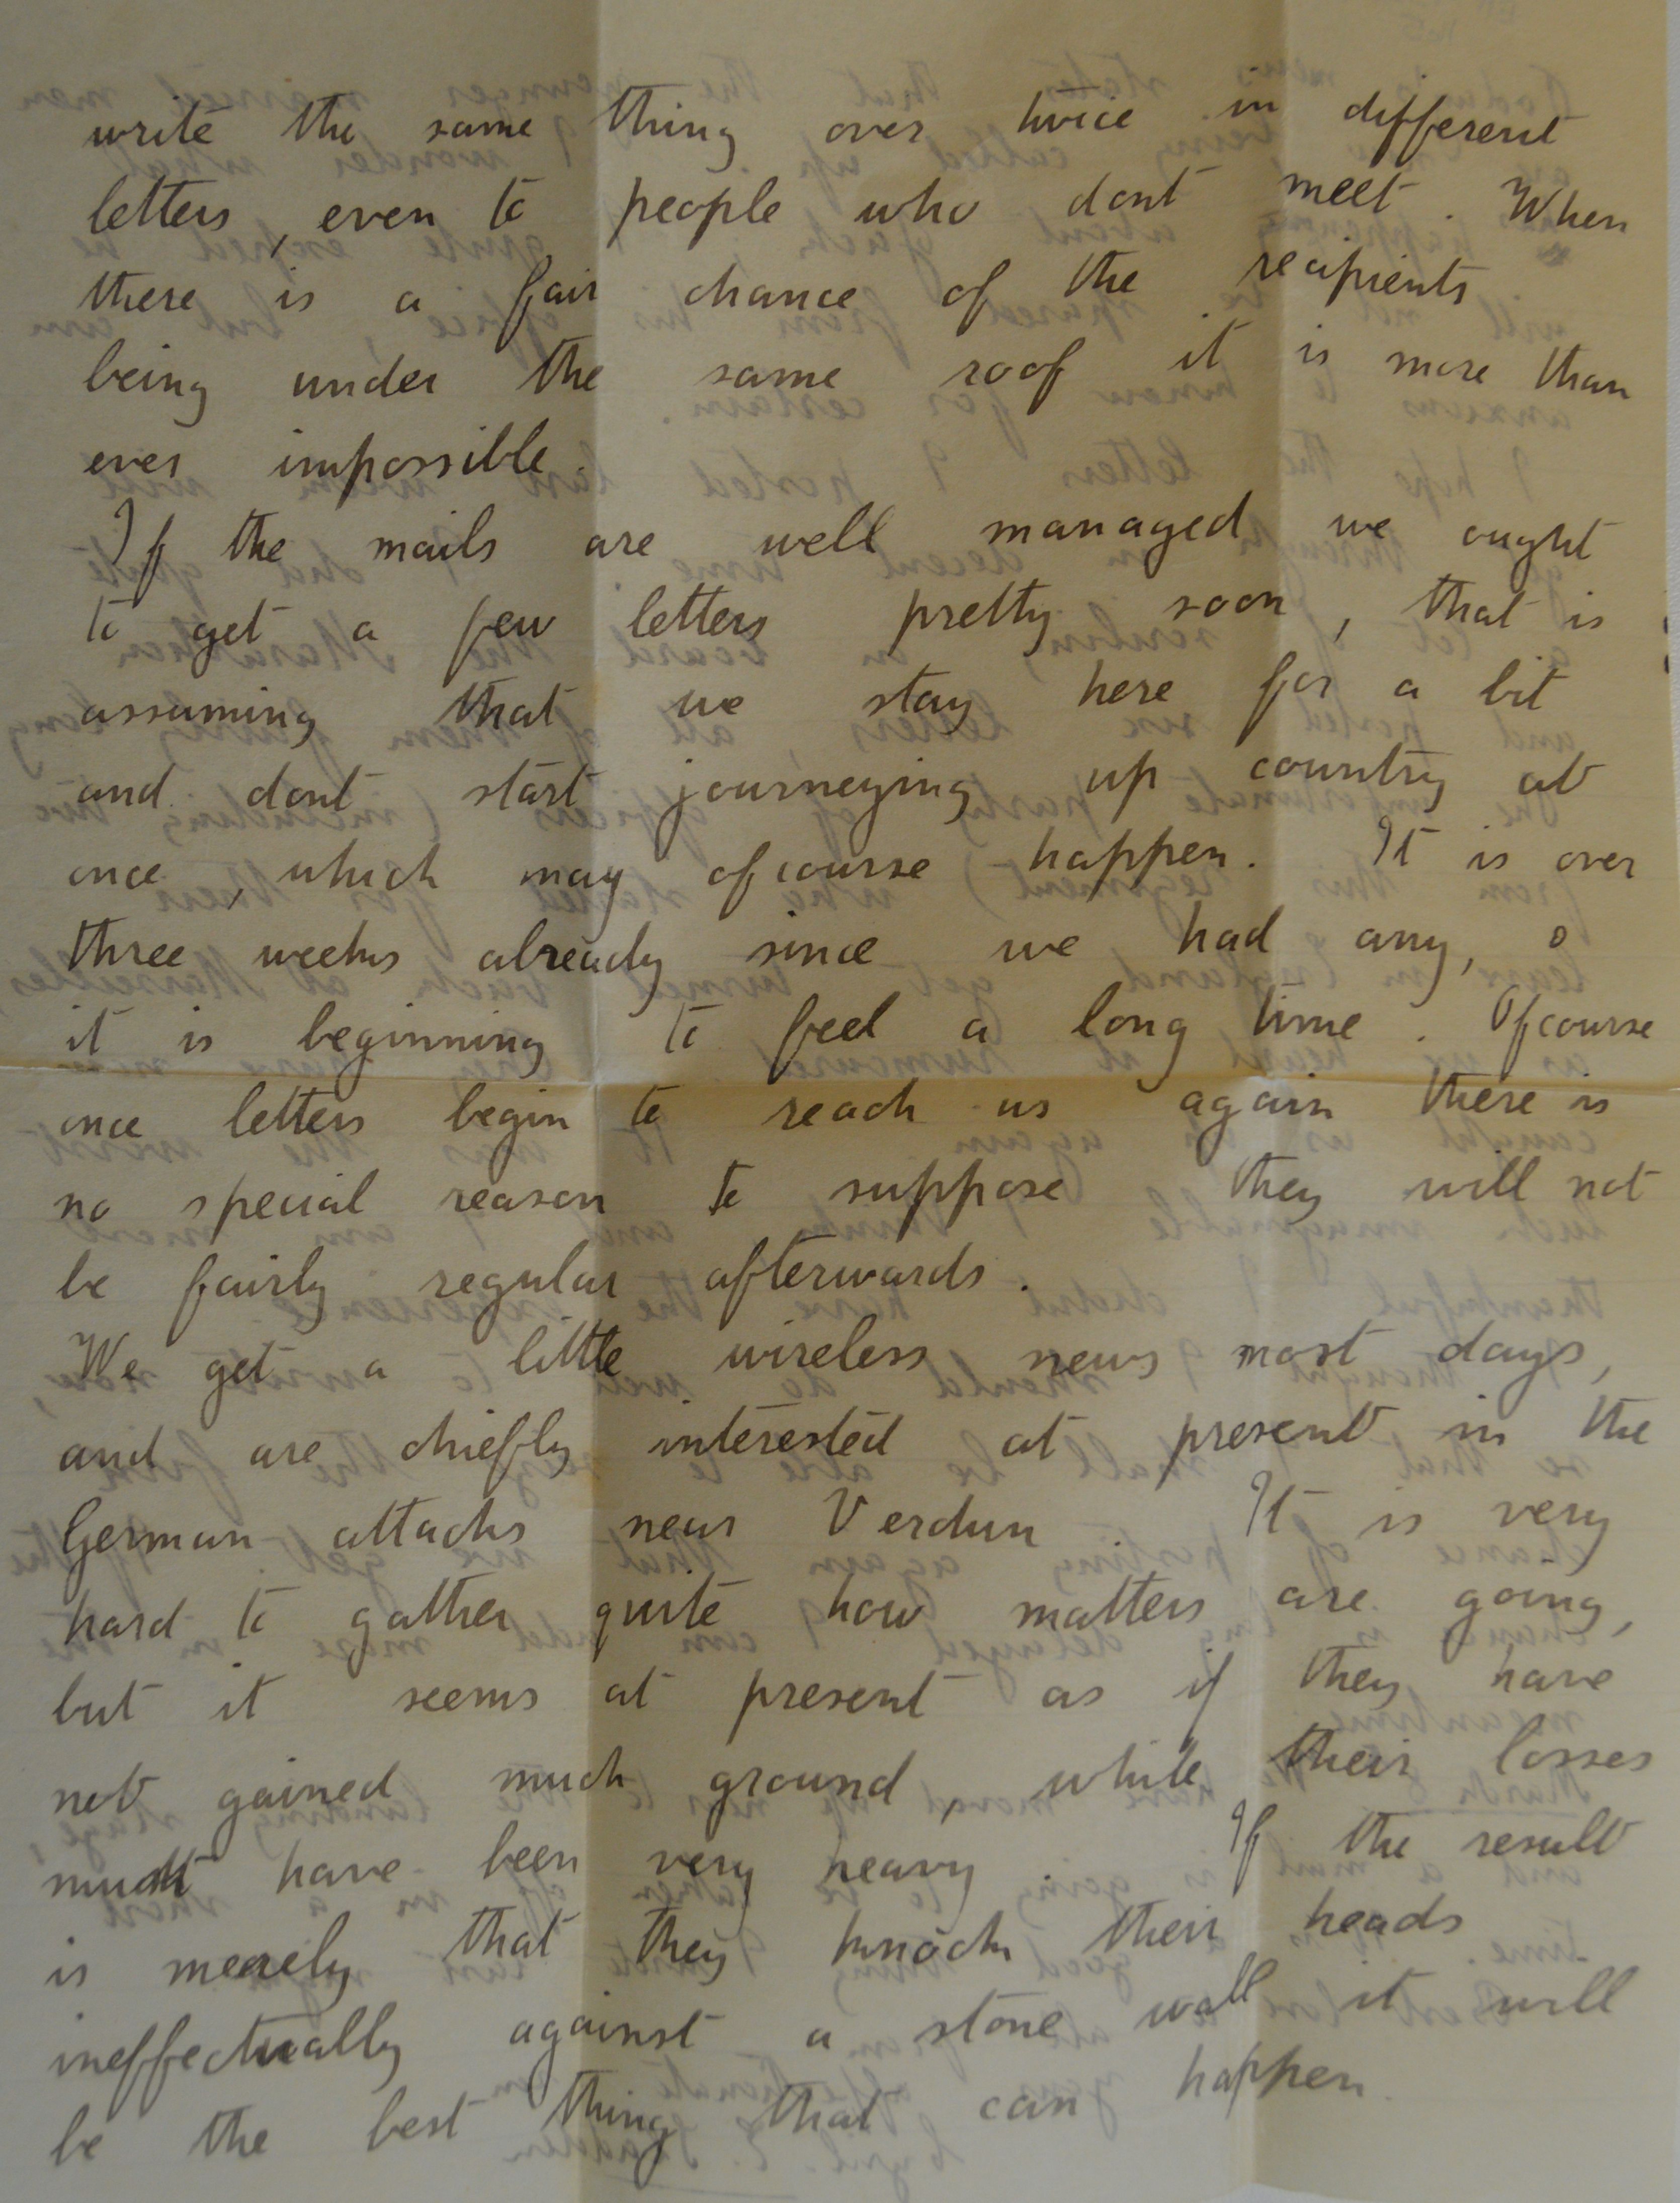 write the same thing over twice in different
letters, even to people who dont meet. When
there is a fair chance of the recipients
being under the same roof it is more than
ever impossible.
If the mails are well managed we ought
to get a few letters pretty soon, that is
assuming that we stay here for a bit
and dont start journeying up country at
once, which may ofcourse happen. It is over
three weeks already since we had any, &
it is beginning to feel a long time. Ofcourse
once letters begin to reach us again there is
no special reason to suppose they will not
be fairly regular afterwards.
We get a little wireless news most days,
and are chiefly interested at present in the
German attacks near Verdun It is very
hard to gather quite how matters are going,
but it seems at present as if they have
not gained much ground, while their losses
must have been very heavy. If the result
is merely that they knock their heads
ineffectually against a stone wall it will
be the best thing that can happen.